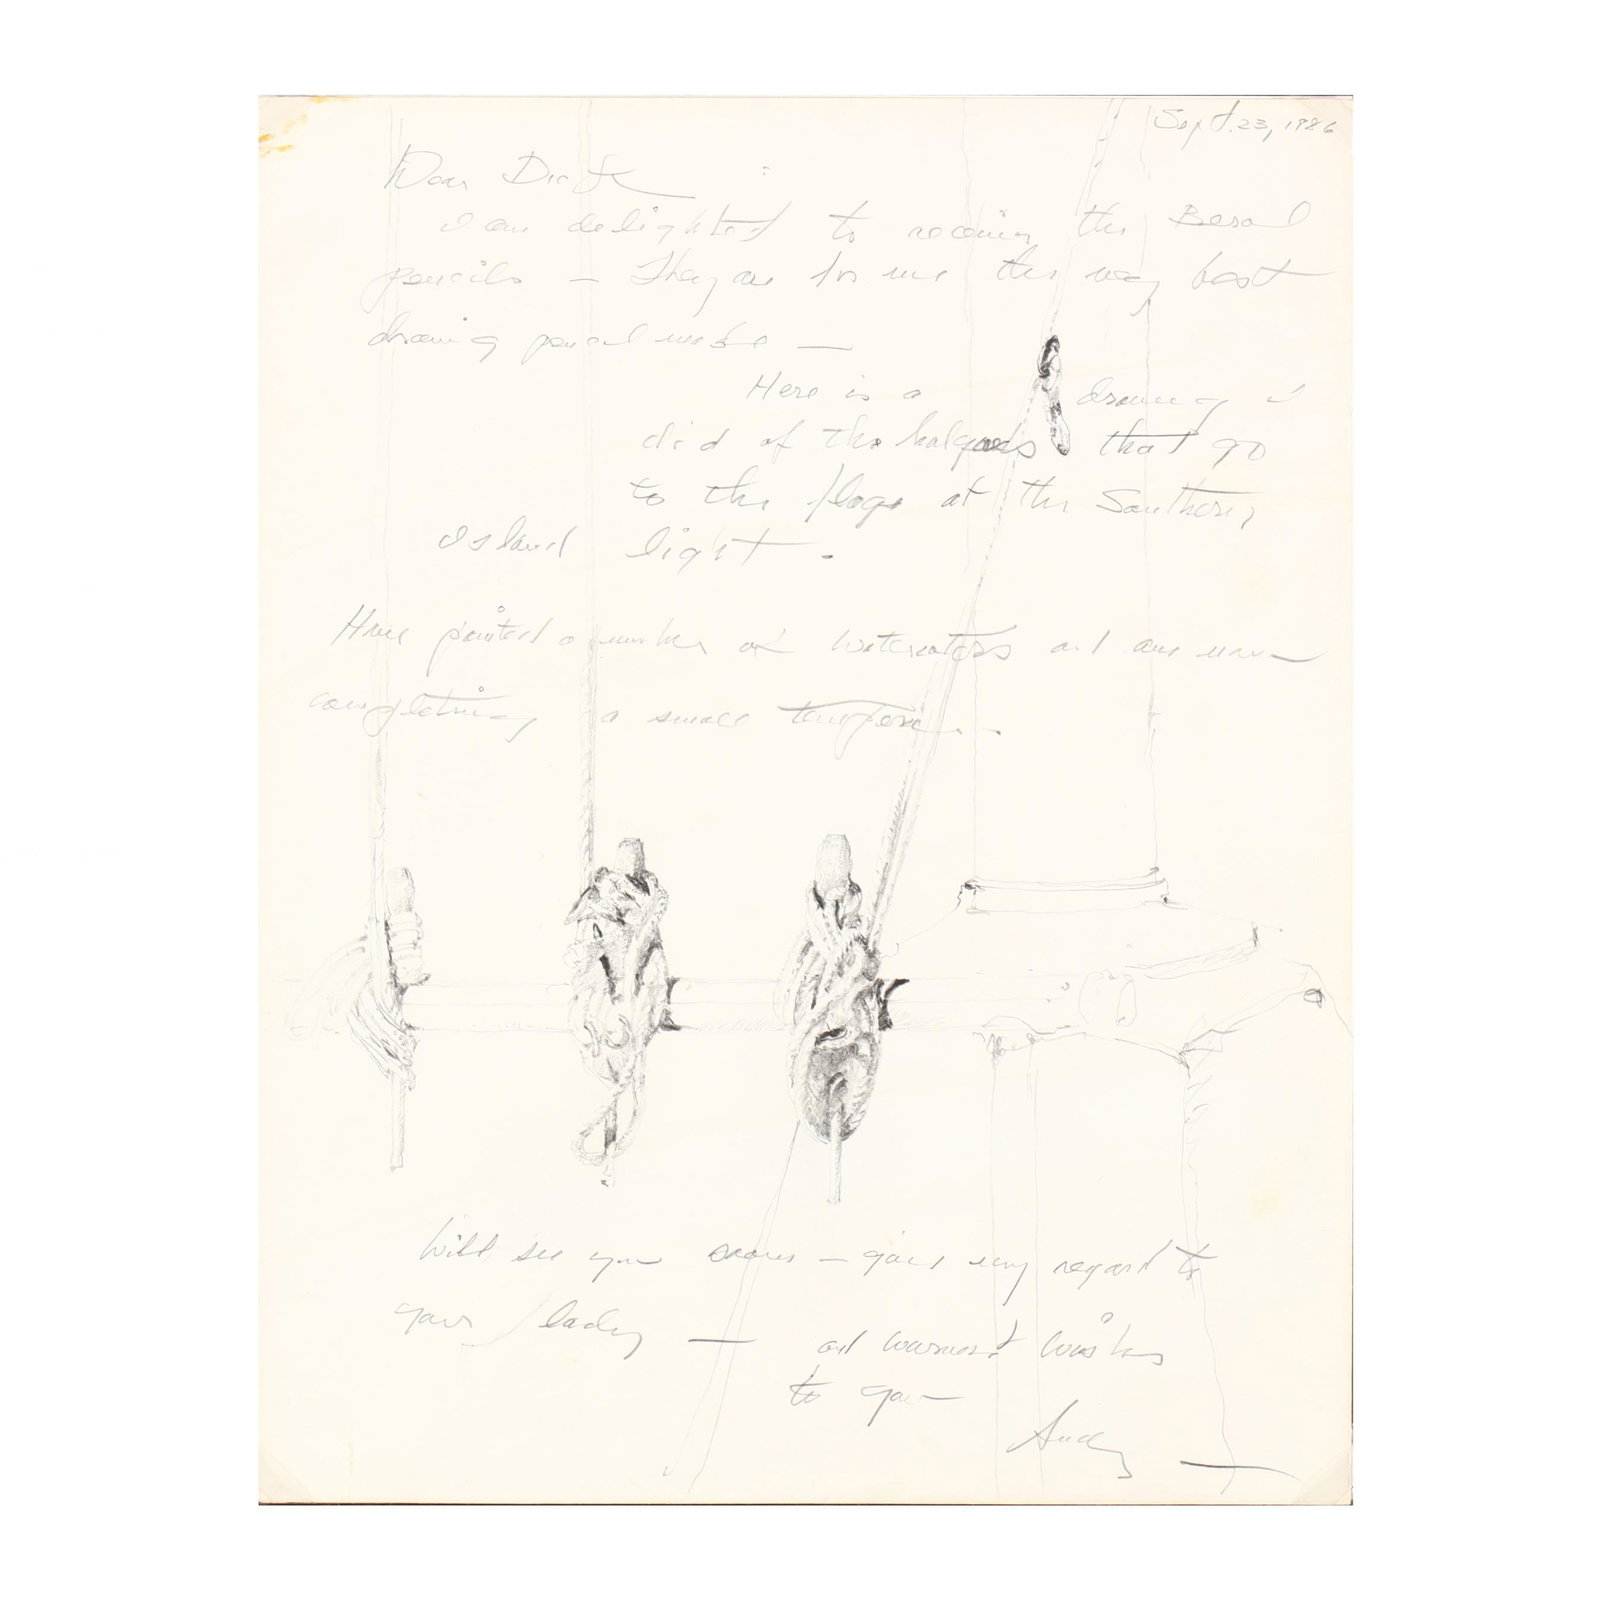 Sept. 23, 1986
Dear Dick
I am delighted to receive the Berol
pencils — They are for me the very best
drawing pencil made —
Here is a drawing I
did of the halyards that go
to the flags at the Southern
Island light.
Have painted a number of watercolors and am now
completing a small tempera.
Will see you soon — give my regard to
your lady — and warmest wishes
to you
Andy —